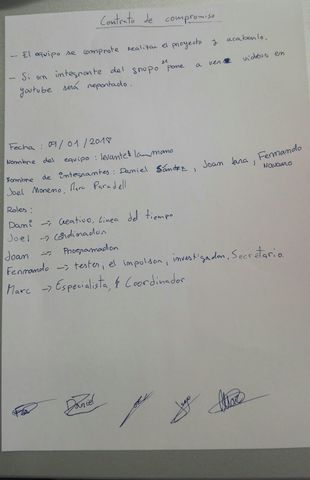 Contrato de compromiso
- El equipo se compromete realizar el proyecto y acabarlo.
- Si un integrante del grupo se pone a ver videos en
youtube será reportado.
Fecha: 09/01/2018
Nombre del equipo: levantela mano
Nombre de integrantes: Daniel Sández, Joan Jara, Fernando Navarro
Joel Moreno, Marc Paradell
Roles:
Dani -> Creativo, Linea del tiempo
Joel -> Cordinador
Joan -> Programador
Fernando -> tester, el impulsor, investigador, Secretario.
Marc -> Especialista, Coordinador
Daniel